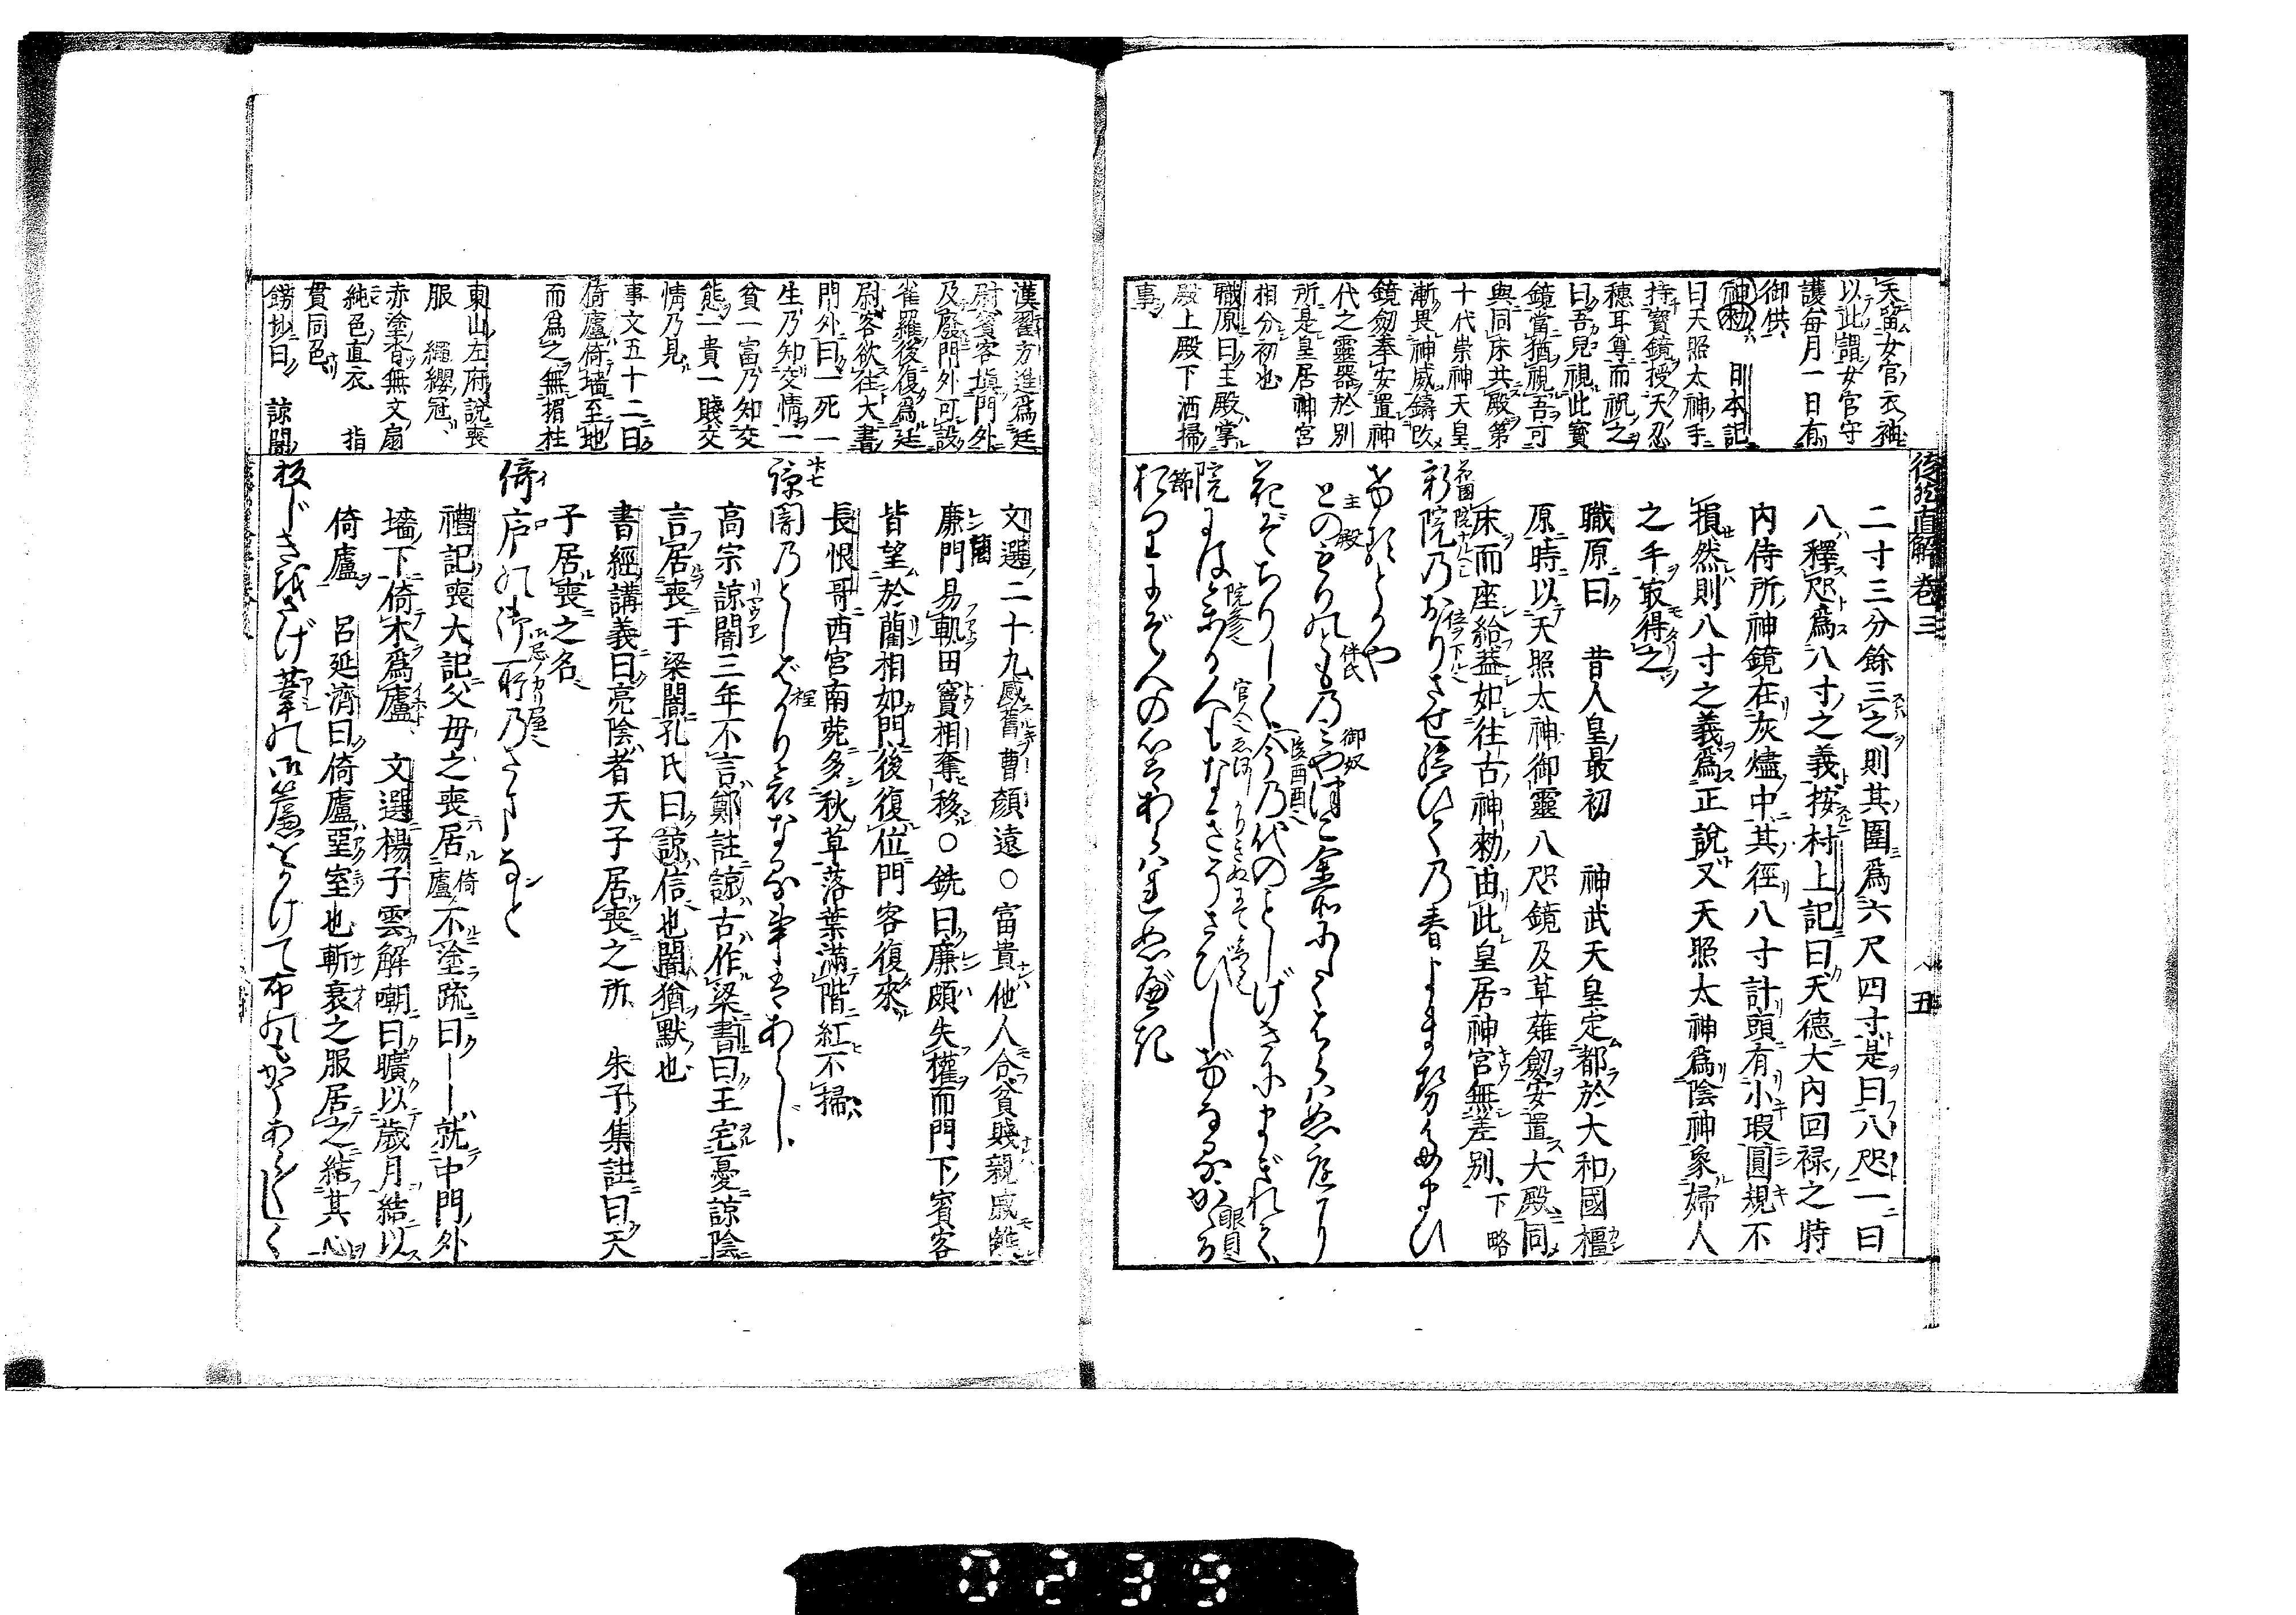 徒然直解卷三
五
天留女官衣袖
以此謂女官守
護每月一日有
御供
神勅 日本記
曰天照太神手
持寶鏡授天忍
穗耳尊而祝之
曰吾兒視此寳
鏡當猶視吾可
與同床共殿第
十代崇神天皇
漸畏神威鑄改
鏡劔奉安置神
代之靈器於別
所是皇居神宮
相分初也
職原曰主殿掌
殿上殿下洒掃
事
二寸三分餘三之則其圍爲六尺四寸是曰八咫一曰
八釋咫爲八寸之義按村上記曰天德大內回禄之時
内侍所神鏡在灰燼中其徑八寸計頭有小瑕圓規不
損然則八寸之義爲正說又天照太神爲陰神象婦人
之手取得之
職原曰 昔人皇最初 神武天皇定都於大和國橿
原時以天照太神御靈八咫鏡及草薙劔安置大殿同
床而座給葢如往古神勅由此皇居神宮無差別下略
新院乃おりさせ給ひての春よませ給ひ
けるとかや
とのもりのとものみやつこよそにしてはらはぬ庭に
花ぞちりしく今の代のことしげきにまぎれて
院にはまいる人もなきぞさびしげなるかゝる
折にぞ人の心もあらはれぬべき
漢翟方進爲廷
尉賓客塡門外
及廢門外可設
雀羅後復爲廷
尉客欲往大書
門外曰一死一
生乃知交情一
貧一富乃知交
態一貴一賤交
情乃見
事文五十二曰
倚廬倚墻至地
而爲之無楣柱
東山左府說喪
服 繩纓冠
赤塗杳無文扇
純色直衣 指
貫同色
錺抄曰 諒闇
文選二十九感舊曹顏遠○富貴他人合貧賤親戚離
廉門易軌田竇相奪移○銑曰廉頗失權而門下賓客
皆望於藺相如門後復位門客復來
長恨哥西宮南苑多秋草落葉滿階紅不掃
諒闇乃としばかり哀なる事はあらじ
高宗諒闇三年不言鄭註諒古作梁書曰王宅憂諒陰
言居喪于梁闇孔氏曰諒信也闇猶默也
書經講義曰亮陰者天子居喪之所 朱子集註曰天
子居喪之名
倚庐の御所乃さまなど
禮記喪大記父毋之喪居倚廬不塗疏曰――就中門外
墻下倚木爲廬 文選楊子雲解嘲曰曠以歲月結以
倚廬 呂延濟曰倚廬堊室也斬衰之服居之結其心
板じきをさげ葦の御簾をかけて布のもかうあら〳〵しく